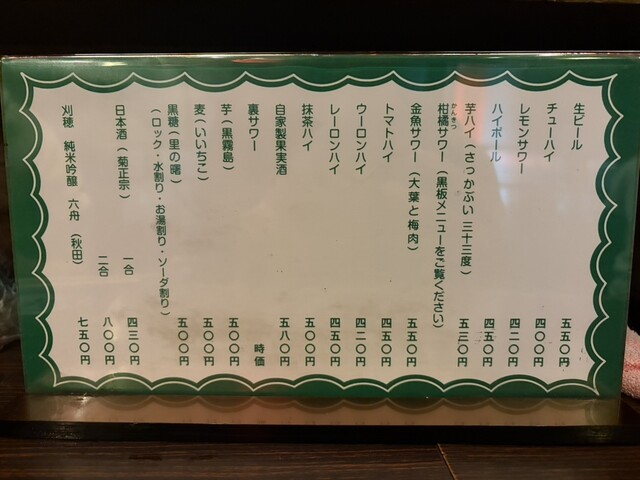 生ビール 五五〇円
チューハイ 四〇〇円
レモンサワー 四二〇円
ハイボール 四五〇円
芋ハイ（さっかぶい 三十三度） 五三〇円
かんきつ
柑橘サワー（黒板メニューをご覧ください）
金魚サワー（大葉と梅肉） 五五〇円
トマトハイ 四五〇円
ウーロンハイ 四二〇円
レーロンハイ 四五〇円
抹茶ハイ 五〇〇円
自家製果実酒 五八〇円
裏サワー 時価
芋（黒霧島） 五〇〇円
麦（いいちこ） 五〇〇円
黒糖（里の曙） 五〇〇円
（ロック・水割り・お湯割り・ソーダ割り）
日本酒（菊正宗） 一合 四三〇円
二合 八〇〇円
刈穂 純米吟醸 六舟（秋田） 七五〇円